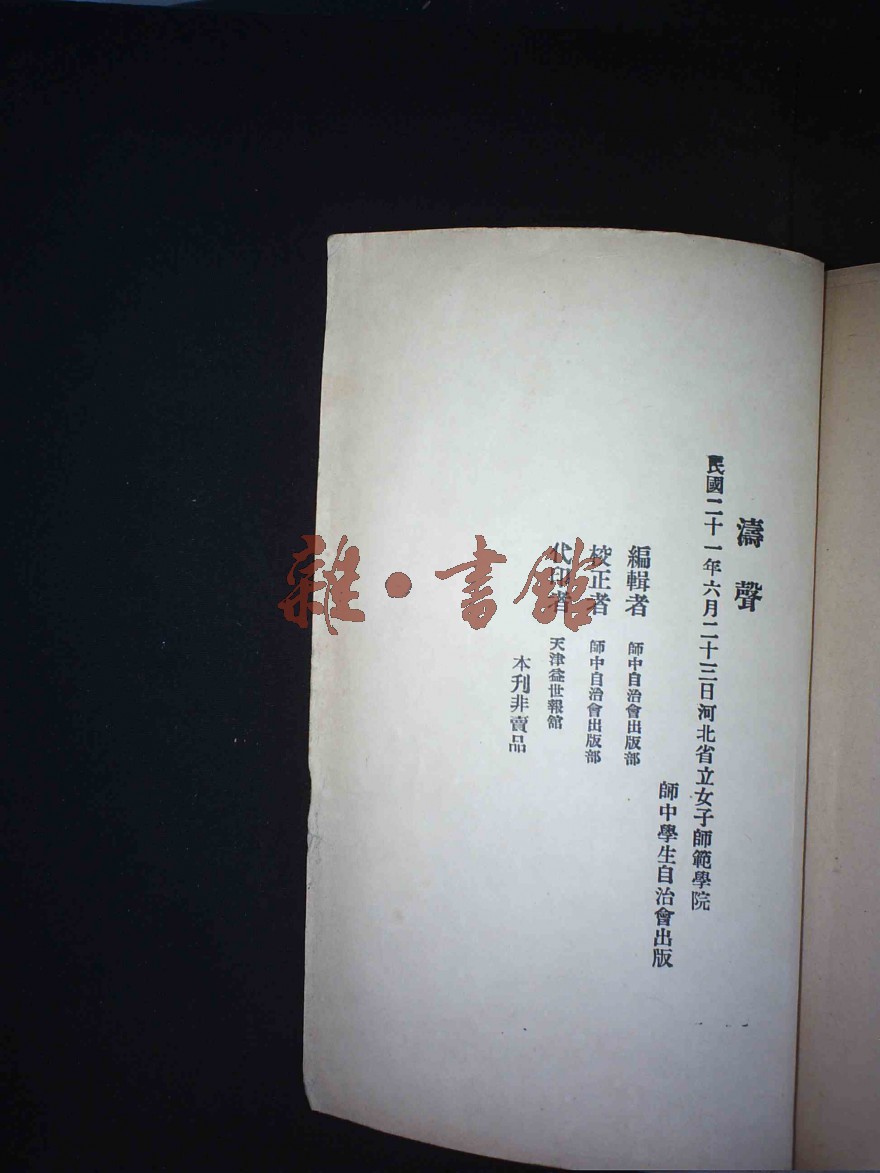 濤聲
民國二十一年六月二十三日河北省立女子師範學院
師中學生自治會出版
編輯者 師中自治會出版部
校正者 師中自治會出版部
代印者 天津益世報館
本刊非賣品
雜·書館